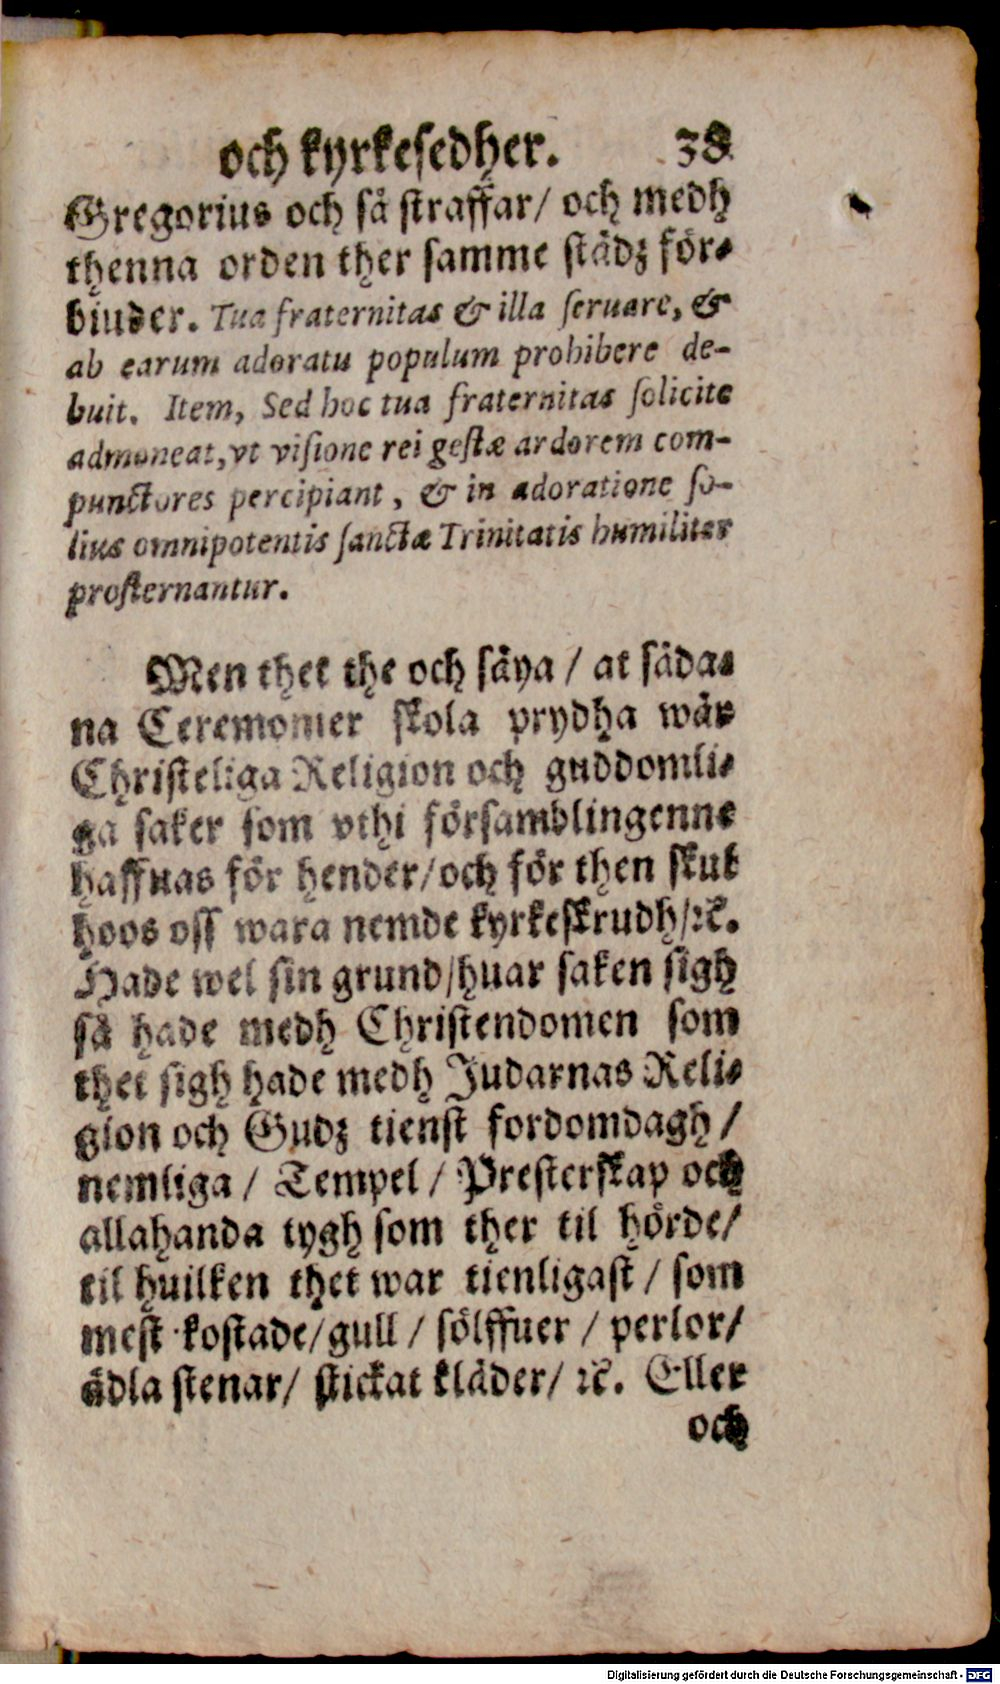 och kyrkesedher. 38
Gregorius och så straffar/ och medh
thenna orden ther samme städz för⸗
biuder. Tua fraternitas & illa ſeruare, &
ab earum adoratu populum prohibere de-
buit. Item, Sed hoc tua fraternitas ſolicite
admoneat, vt viſione rei geſtæ ardorem com-
punctores percipiant, & in adoratione ſo-
lius omnipotentis ſanctæ Trinitatis humiliter
proſternantur.
Men thet the och säya / at såda⸗
na Ceremonier skola prydha wår
Christeliga Religion och guddomli⸗
ga saker som vthi församblingenne
haffuas för hender/och för then skul
hoos oss wara nemde kyrkeskrudh/ꝛc.
Hade wel sin grund/huar saken sigh
så hade medh Christendomen som
thet sigh hade medh Judarnas Reli⸗
gion och Gudz tienst fordomdagh/
nemliga / Tempel / Presterskap och
allahanda tygh som ther til hörde/
til huilken thet war tienligast / som
mest kostade/gull / sölffuer / perlor/
ädla stenar/ stickat kläder/ ꝛc. Eller
och
Digitalisierung gefördert durch die Deutsche Forschungsgemeinschaft - DFG